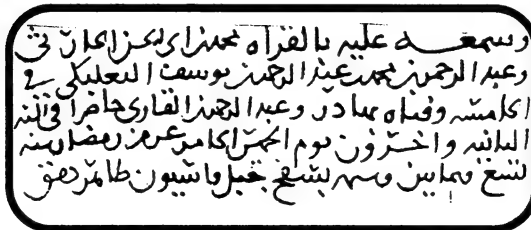 وسمعه عليه بالقراه محمد بن ابى الحسن
وعبد الرحمن بن محمد بن عبد الرحمن بن يوسف البعلبكى فى
الخامسه وفتاه بهادر وعبد الرحمن القارى حاضرا فى السنه
الثانيه واخرون يوم الخميس الخامس عشر من رمضان سنه
تسع وثمانين وستمايه بسفح جبل قاسيون ظاهر دمشق